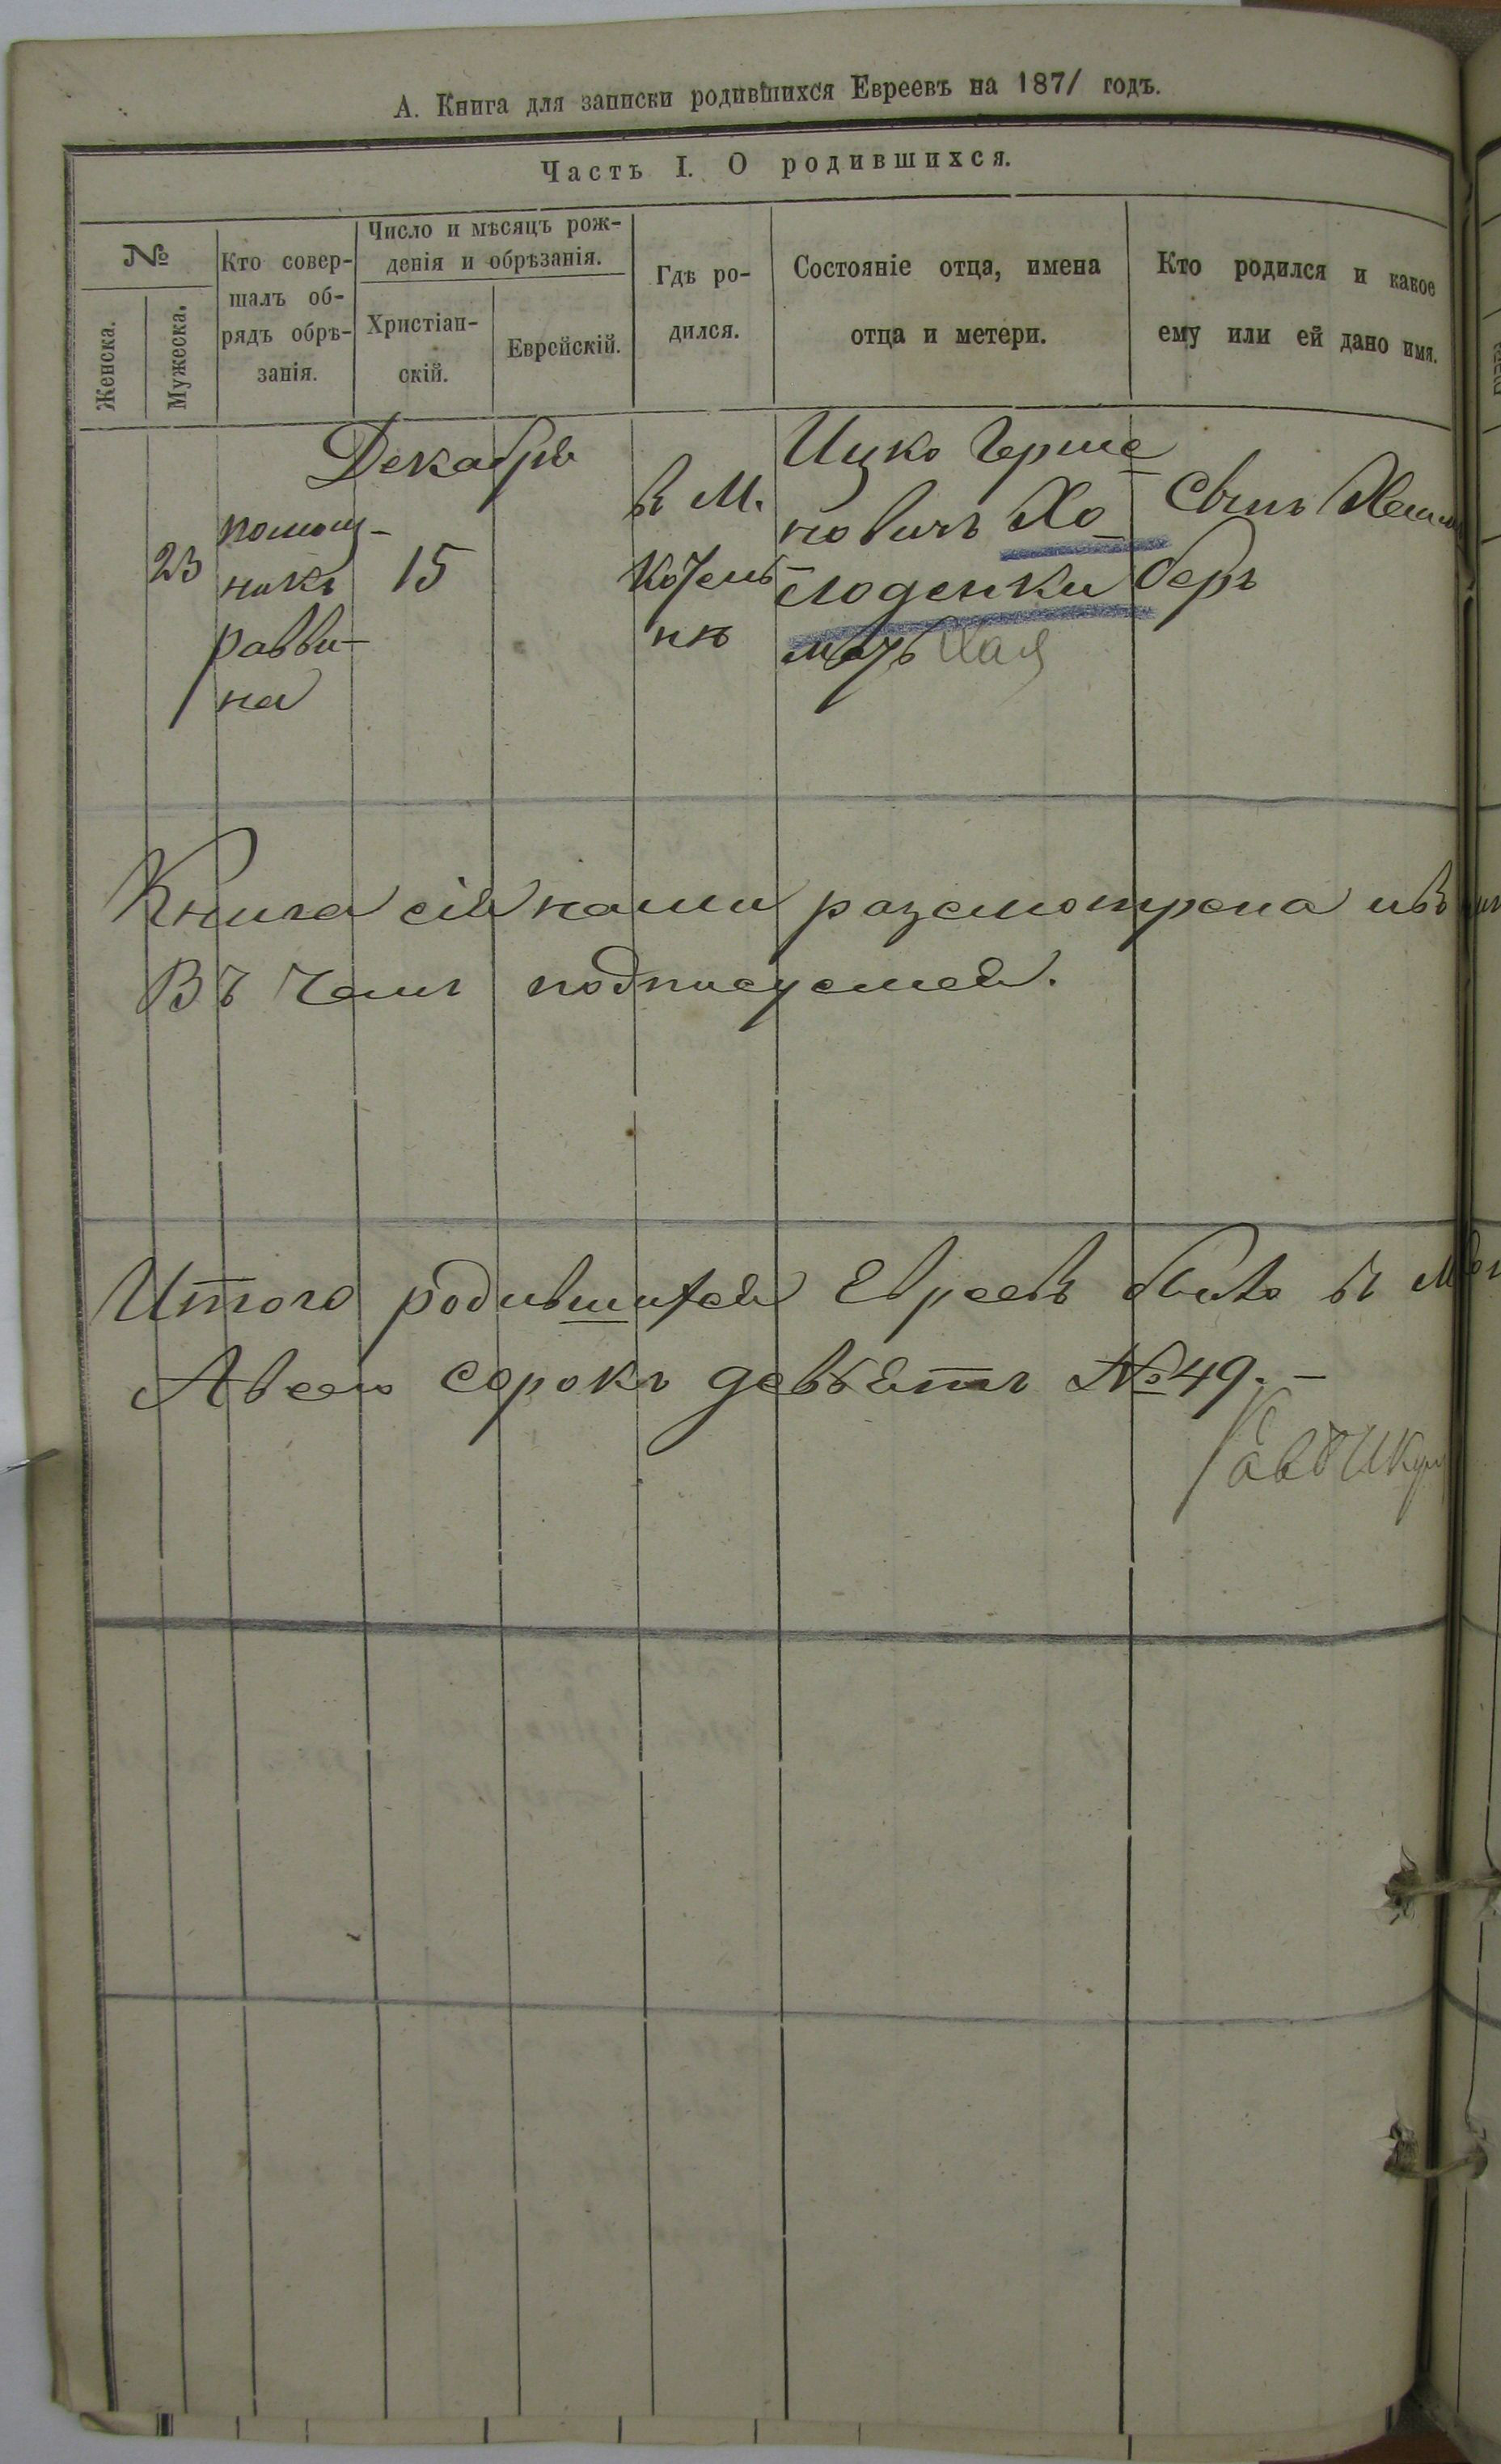 А. Книга для записки родившихся Евреевъ на 1871 годъ.
Часть I. О родившихся.
№
Женска.
Мужеска.
Кто совер-
шалъ об-
рядъ обрѣ-
занія.
Число и мѣсяцъ рож-
денія и обрѣзанія.
Христіан-
скій.
Еврейскій.
Гдѣ ро-
дился.
Состояніе отца, имена
отца и метери.
Кто родился и какое
ему или ей дано имя.
Декабрь
23
помощ-
никъ
равви-
на
15
в М.
Котель
нѣ
Ицко Герше
новичъ Хо
лоденки
мать Хая
Сынъ
беръ
Книга сія нами разсмотрена
Въ чемъ подписуемся.
Итого родившихся Евреевъ было въ
А всего сорокъ №49.-